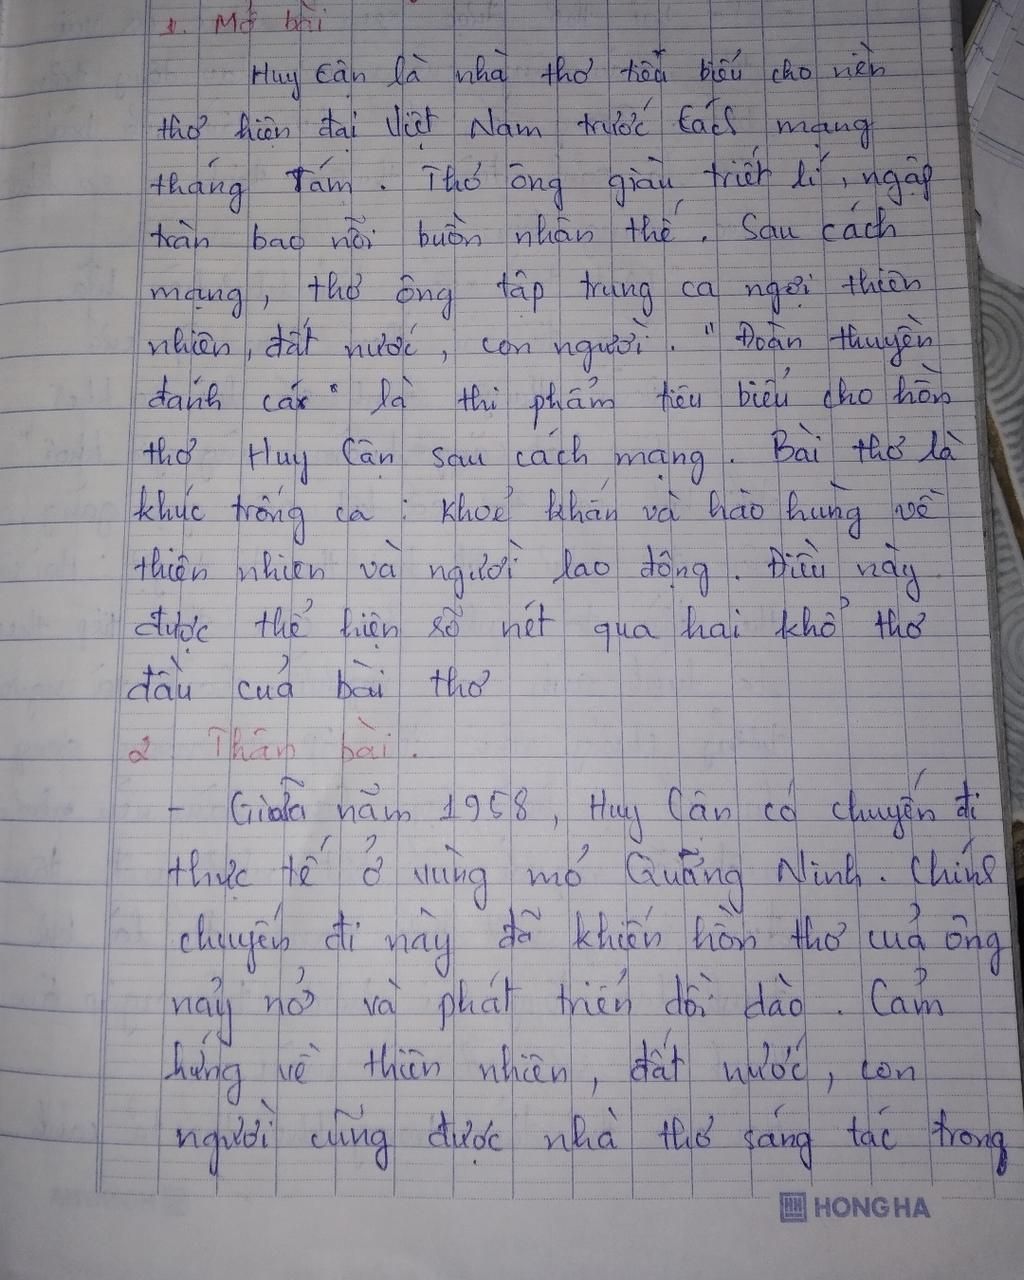 1. Mở bài
Huy Cận là nhà thơ tiêu biểu cho nền
thơ hiện đại Việt Nam trước Cách mạng
tháng Tám. Thơ ông giàu triết lí, ngập
tràn bao nỗi buồn nhân thế. Sau cách
mạng, thơ ông tập trung ca ngợi thiên
nhiên, đất nước, con người. "Đoàn thuyền
đánh cá" là thi phẩm tiêu biểu cho hồn
thơ Huy Cận sau cách mạng. Bài thơ là
khúc tráng ca: khoẻ khắn và hào hùng về
thiên nhiên và người lao động. Điều này
được thể hiện rõ nét qua hai khổ thơ
đầu của bài thơ
2 Thân bài.
- Giữa năm 1958, Huy Cận có chuyến đi
thực tế ở vùng mỏ Quảng Ninh. Chính
chuyến đi này đã khiến hồn thơ của ông
nảy nở và phát triển dồi dào. Cảm
hứng về thiên nhiên, đất nước, con
người cũng được nhà thơ sáng tác trong
HONG HA